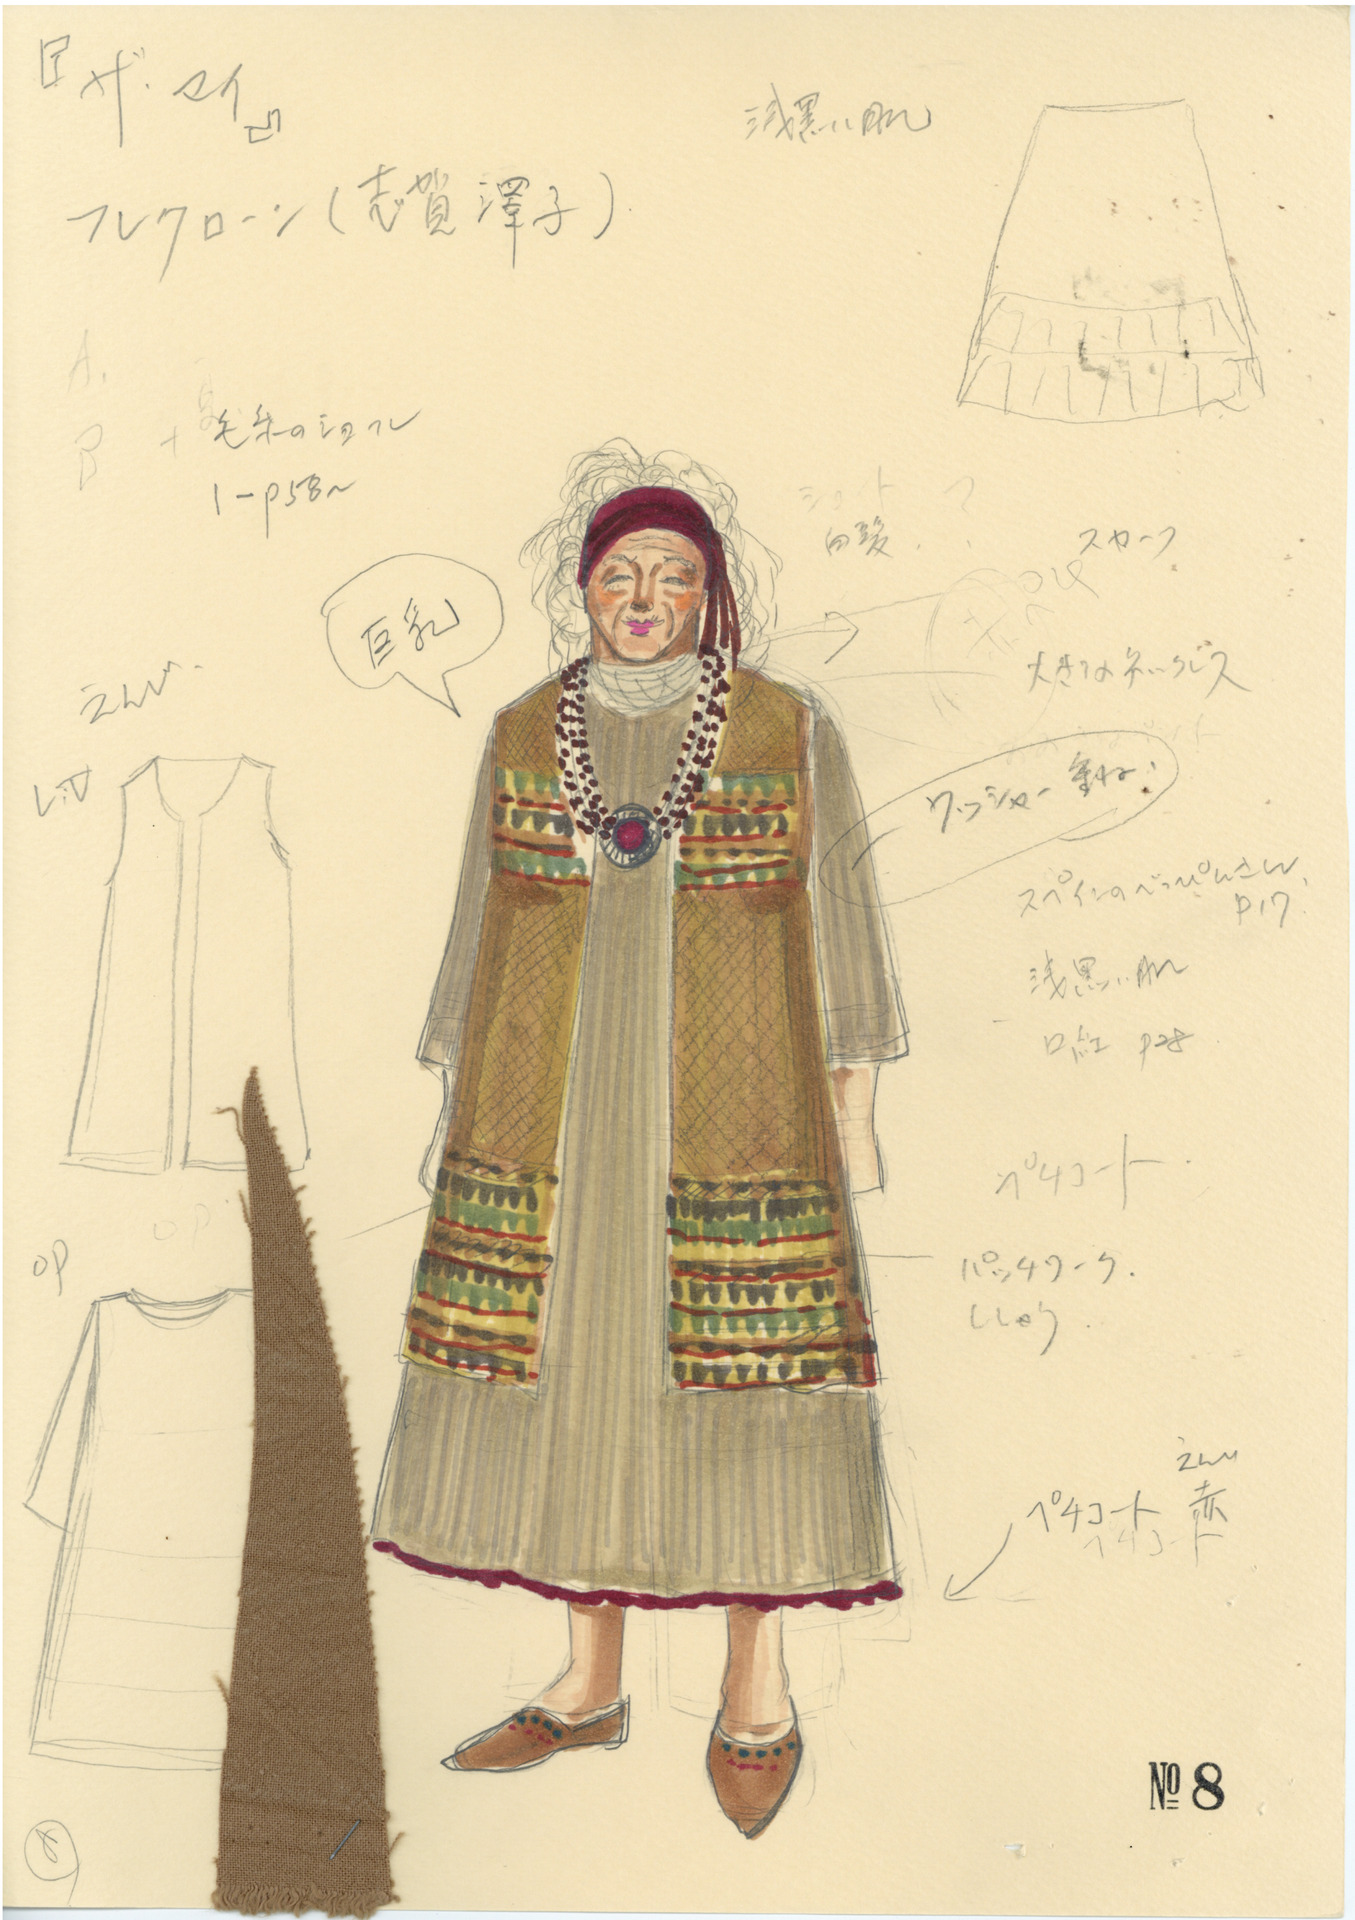 『ザ・マイ』
フレクローン(志賀澤子)
浅黒い肌
A.
B + 毛糸のショール
1-p58~
ショート ?
白髪.
スカーフ
巨乳
大きなネックレス
えんじ.
ワッシャー重ね!
スペインのべっぴんさん,
P17.
浅黒い肌
口紅 p28
ペチコート.
OP
OP
パッチワーク.
ししゅう.
えんじ
ペチコート 赤
ペチコート
№ 8
8